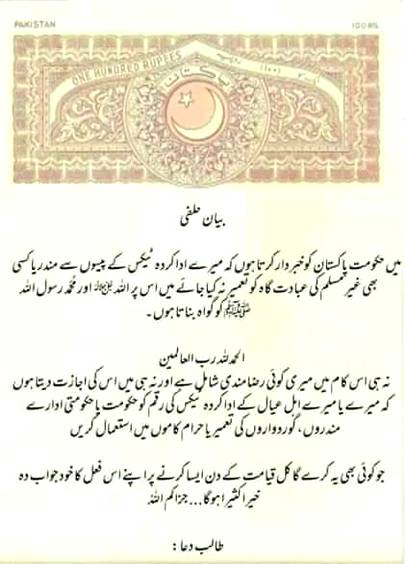 PAKISTAN 100RS
ONE HUNDRED RUPEES
پاکستان
بیان حلفی
میں حکومت پاکستان کو خبردار کرتا ہوں کہ میرے ادا کردہ ٹیکس کے پیسوں سے مندر یا کسی
بھی غیر مسلم کی عبادت گاہ کو تعمیر نہ کیا جائے میں اس پر اللہ ﷻ اور محمد رسول اللہ
ﷺ کو گواہ بناتا ہوں۔
الحمدللہ رب العالمین
نہ ہی اس کام میں میری کوئی رضامندی شامل ہے اور نہ ہی میں اس کی اجازت دیتا ہوں
کہ میرے یا میرے اہل عیال کے ادا کردہ ٹیکس کی رقم کو حکومت یا حکومتی ادارے
مندروں، گوردواروں کی تعمیر یا حرام کاموں میں استعمال کریں
جو کوئی بھی یہ کرے گا کل قیامت کے دن ایسا کرنے پر اپنے اس فعل کا خود جواب دہ
ہوگا... جزاکم اللہ خیرا کثیرا
طالب دعا: